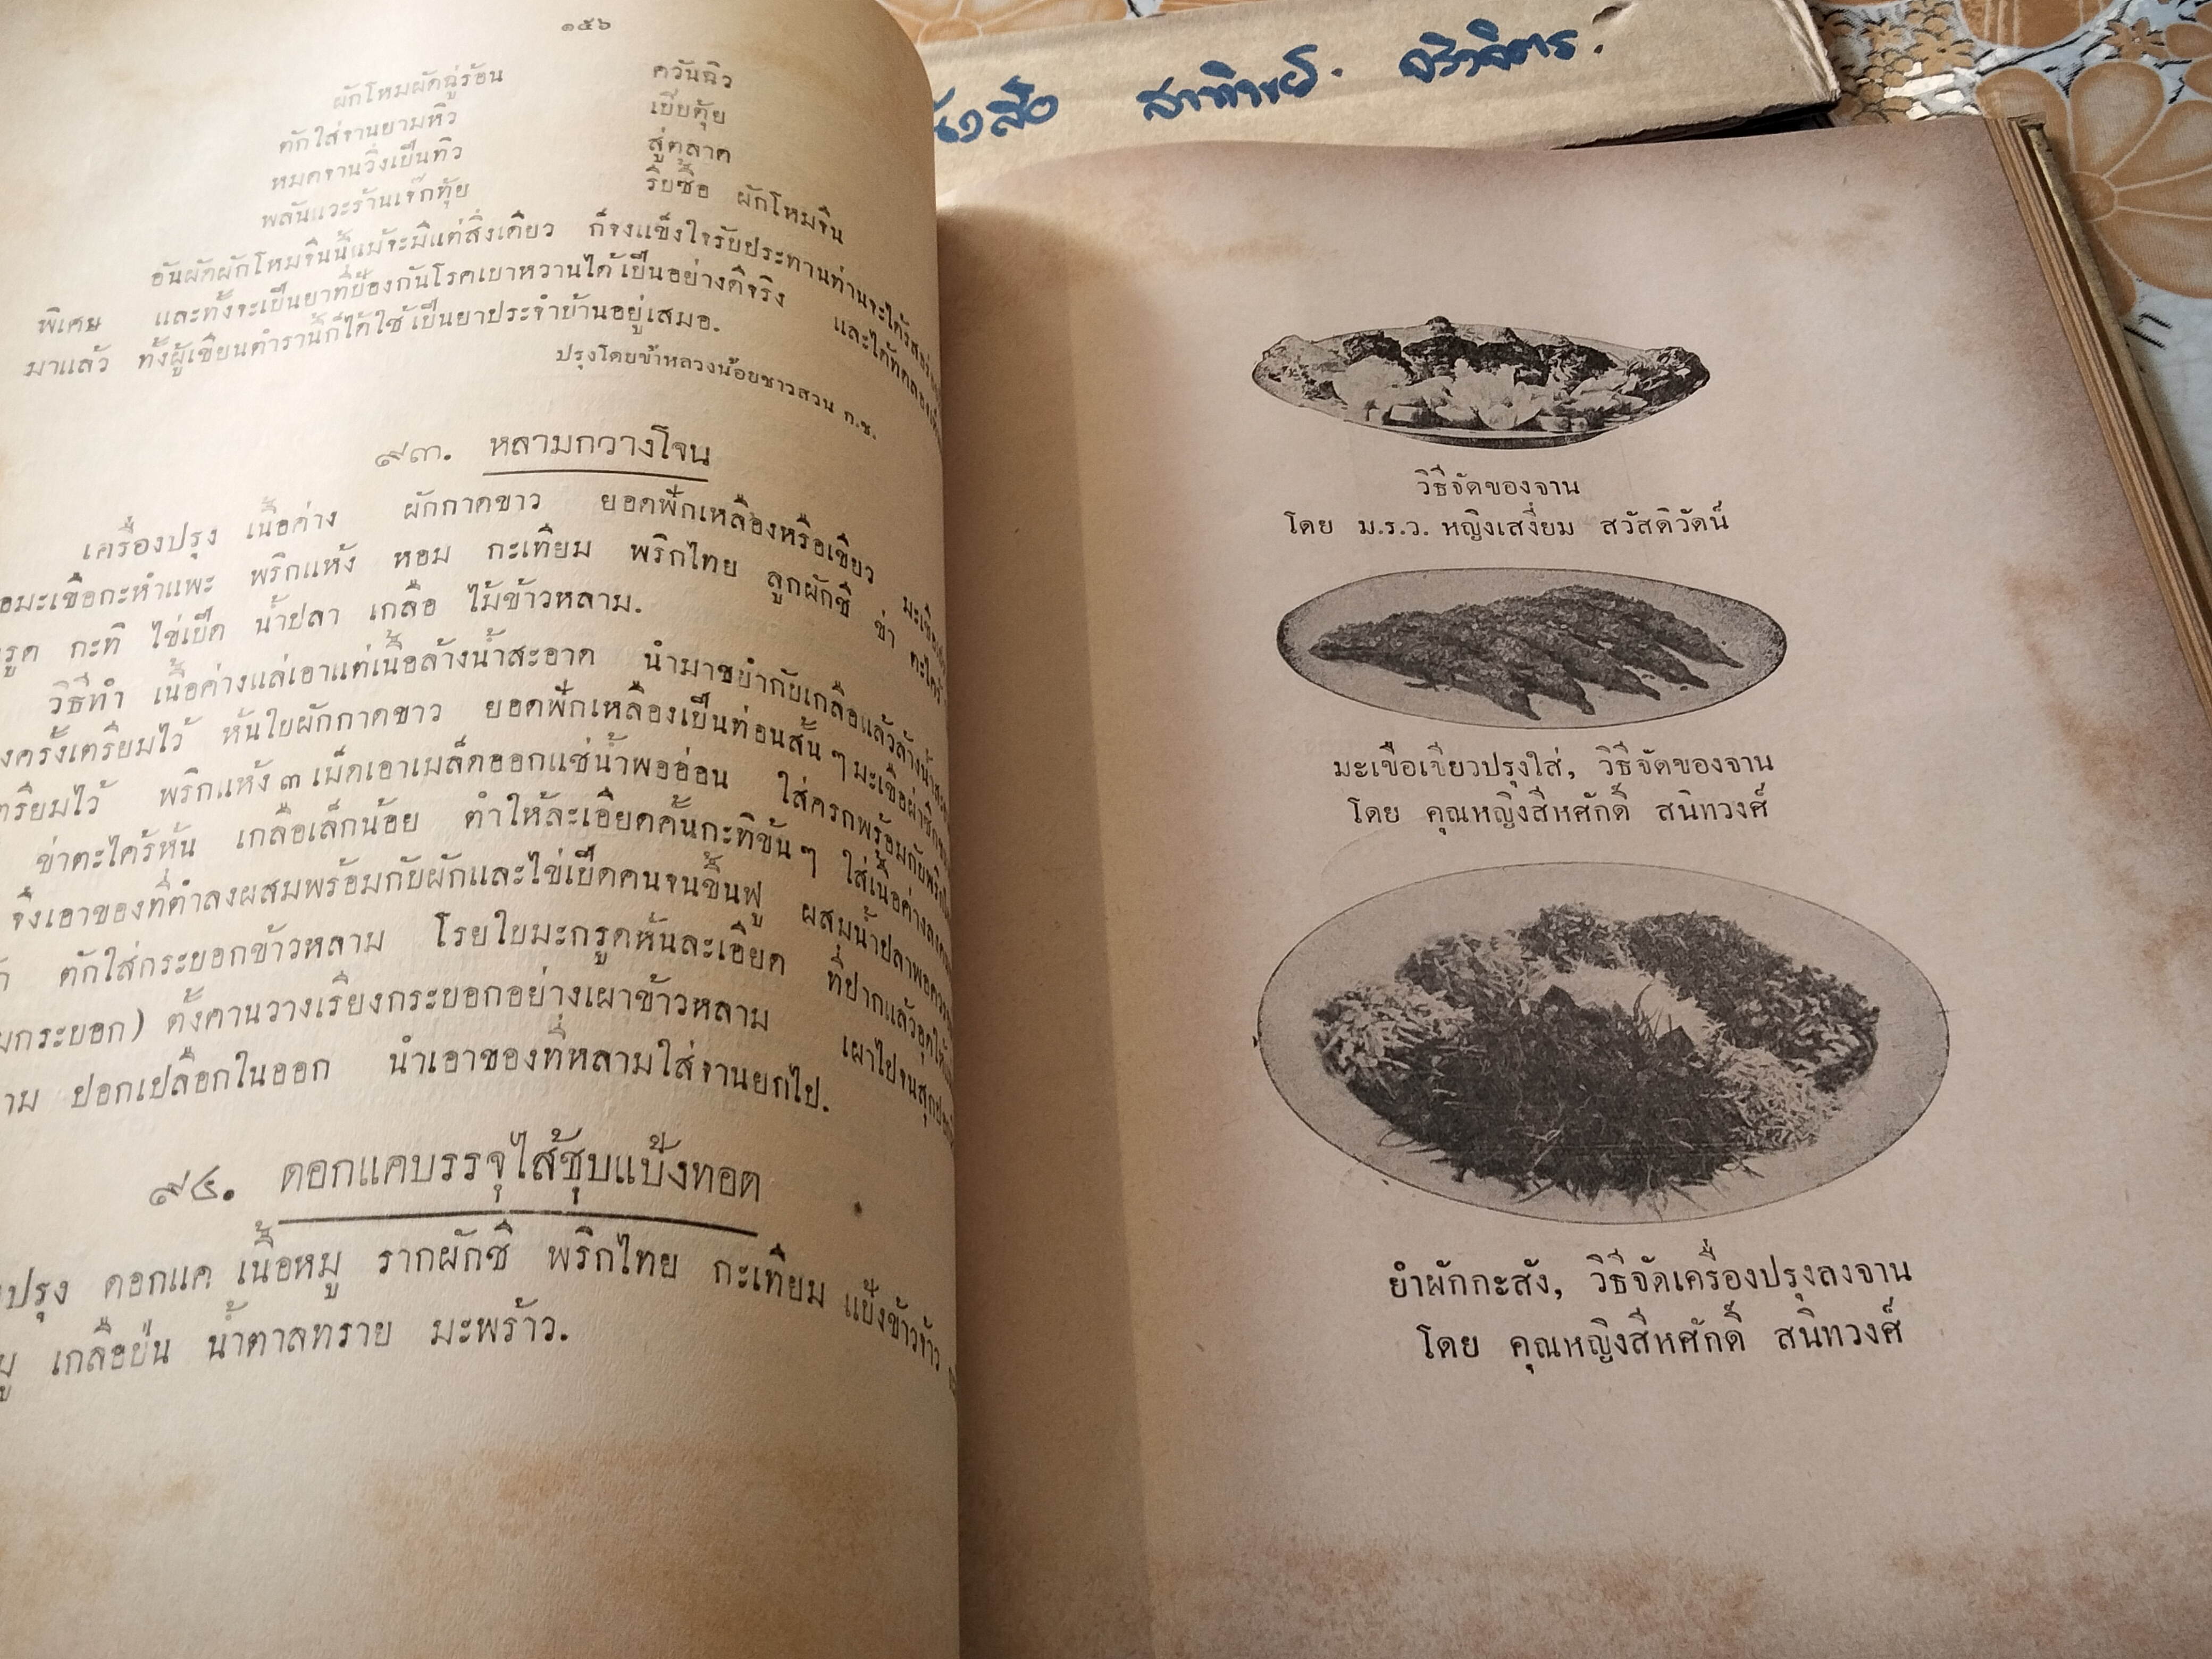 ๑๕๖
ผักโหมผัดฉู่ร้อน ควันฉิว
ตักใส่จานยามหิว เบียบตุ้ย
หมดจานวิ่งเป็นทิว สู่ตลาด
พลันแวะร้านเจ๊กทุ้ย ริบซื้อ ผักโหมจีน
อันผัดผักโหมจีนนี้แม้จะมีแต่สิ่งเดียว ก็จงแข็งใจรับประทานท่านจะได้รสอร่อย
พิเศษ และทั้งจะเป็นยาที่ป้องกันโรคเบาหวานได้เป็นอย่างดีจริง และได้ทดลอง
มาแล้ว ทั้งผู้เขียนตำรานี้ก็ได้ใช้เป็นยาประจำบ้านอยู่เสมอ.
ปรุงโดยข้าหลวงน้อยชาวสวน ก.ช.
๙๓. หลามกวางโจน
เครื่องปรุง เนื้อค่าง ผักกาดขาว ยอดฟักเหลืองหรือเขียว
มะเขือกะหำแพะ พริกแห้ง หอม กะเทียม พริกไทย ลูกผักชี ข่า ตะไคร้
กะทิ ไข่เป็ด น้ำปลา เกลือ ไม้ข้าวหลาม.
วิธีทำ เนื้อค่างแล่เอาแต่เนื้อล้างน้ำสะอาด นำมาขยำกับเกลือแล้วล้างน้ำ
ครั้งเตรียมไว้ หั่นใบผักกาดขาว ยอดฟักเหลืองเป็นท่อนสั้น ๆ มะเขือผ่าซีก
เตรียมไว้ พริกแห้ง ๓ เม็ดเอาเมล็ดออกแช่น้ำพออ่อน ใส่ครกพร้อมกับพริกไทย
ข่าตะไคร้หั่น เกลือเล็กน้อย ตำให้ละเอียดคั้นกะทิข้น ๆ ใส่เนื้อค่างลง
จึงเอาของที่ตำลงผสมพร้อมกับผักและไข่เป็ดคนจนขึ้นฟู ผสมน้ำปลาพอควร
ตักใส่กระบอกข้าวหลาม โรยใบมะกรูดหั่นละเอียด ที่ปากแล้วอุดให้
กระบอก) ตั้งคานวางเรียงกระบอกอย่างเผาข้าวหลาม เผาไปจนสุก
ปอกเปลือกในออก นำเอาของที่หลามใส่จานยกไป.
๙๔. ดอกแคบรรจุไส้ชุบแป้งทอด
ปรุง ดอกแค เนื้อหมู รากผักชี พริกไทย กะเทียม แป้งข้าวจ้าว
เกลือป่น น้ำตาลทราย มะพร้าว.
วิธีจัดของจาน
โดย ม.ร.ว. หญิงเสงี่ยม สวัสดิวัตน์
มะเขือเขียวปรุงใส่, วิธีจัดของจาน
โดย คุณหญิงสีหศักดิ์ สนิทวงศ์
ยำผักกะสัง, วิธีจัดเครื่องปรุงลงจาน
โดย คุณหญิงสีหศักดิ์ สนิทวงศ์